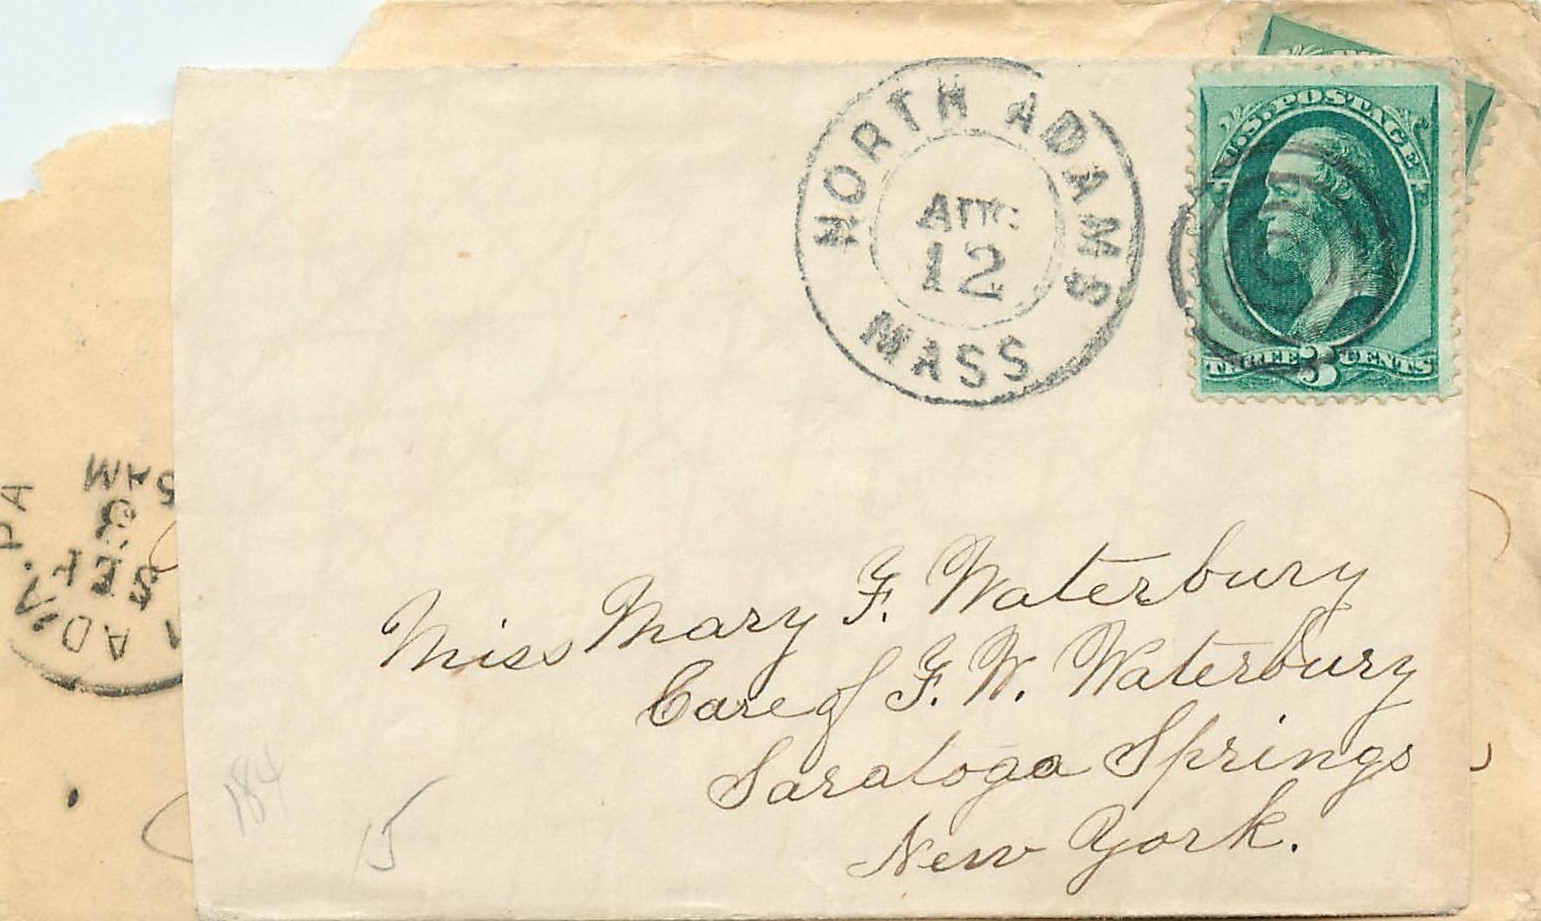 NORTH ADAMS
AUG
12
MASS
U.S. POSTAGE
THREE 3 CENTS
Miss Mary F. Waterbury
Care of F. W. Waterbury
Saratoga Springs
New York.
184
15
5 AM
8
SEP
ADA. PA